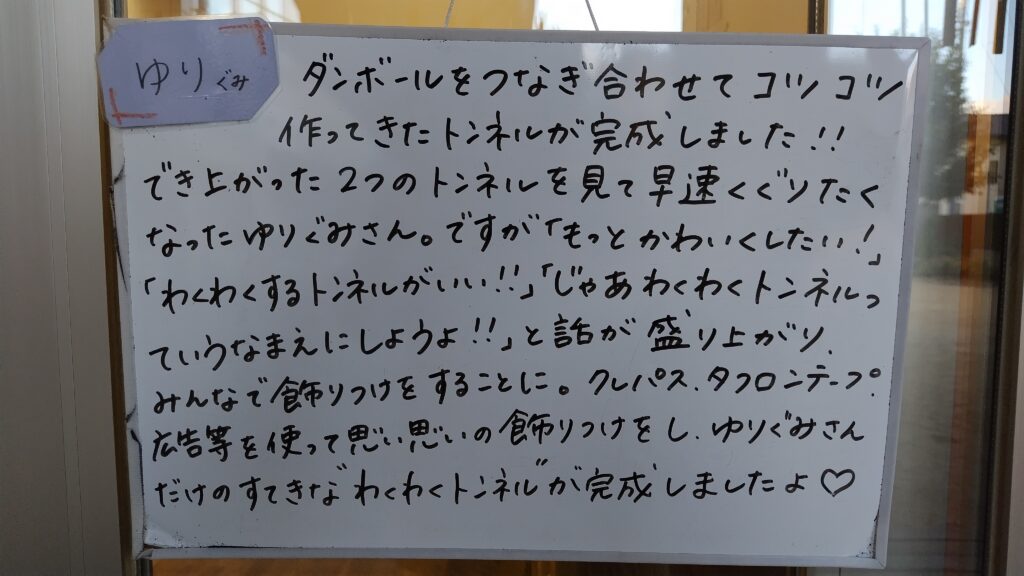 ゆりぐみ
ダンボールをつなぎ合わせてコツコツ
作ってきたトンネルが完成しました!!
でき上がった2つのトンネルを見て早速くぐりたく
なったゆりぐみさん。ですが「もっとかわいくしたい!」
「わくわくするトンネルがいい!!」「じゃあわくわくトンネルっ
ていうなまえにしようよ!!」と話が盛り上がり、
みんなで飾りつけをすることに。クレパス、タフロンテープ、
広告等を使って思い思いの飾りつけをし、ゆりぐみさん
だけのすてきな"わくわくトンネル"が完成しましたよ♡